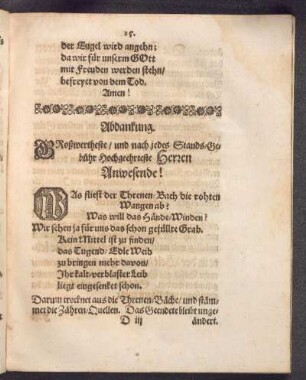 25.
der Engel wird angehn;
da wir für unserm GOtt
mit Freuden werden stehn/
befreyet von dem Tod.
Amen!
Abdankung.
GRoßwertheste/ und nach jedes Stands-Ge-
bühr Hochgeehrteste Herren
Anwesende!
WAs fliest der Threnen-Bach die rohten
Wangen ab?
Was will das Hände-Winden?
Wir sehen ja für uns das schon gefüllte Grab.
Kein Mittel ist zu finden/
das Tugend-Edle Weib
zu bringen mehr davon/
Ihr kalt-verblaster Leib
liegt eingesenket schon.
Darum trocknet aus die Threnen-Bäche/ und stäm-
met die Zähren-Quellen. Das Geendete bleibt unge-
D iij
ändert.